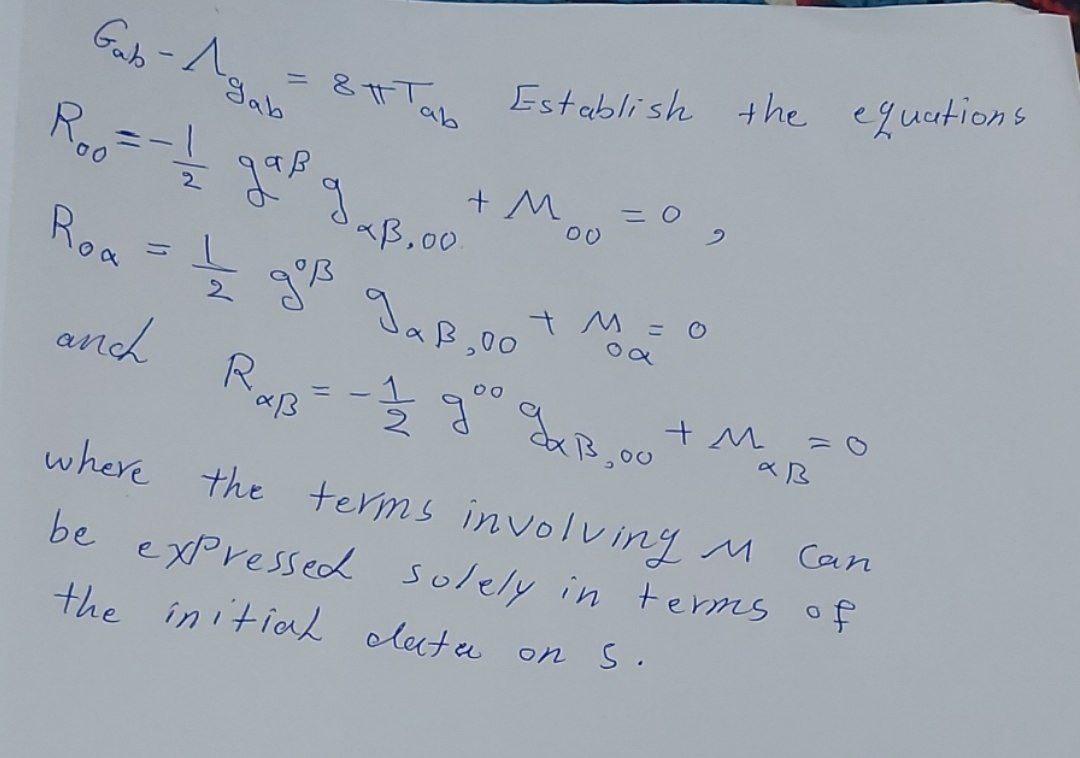 G_ab - Λg_ab = 8πT_ab Establish the equations
R_00 = -1/2 g^αβ g_αβ,00 + M_00 = 0,
R_0α = 1/2 g^0β g_αβ,00 + M_0α = 0
and R_αβ = -1/2 g^00 g_αβ,00 + M_αβ = 0
where the terms involving M can
be expressed solely in terms of
the initial data on S.